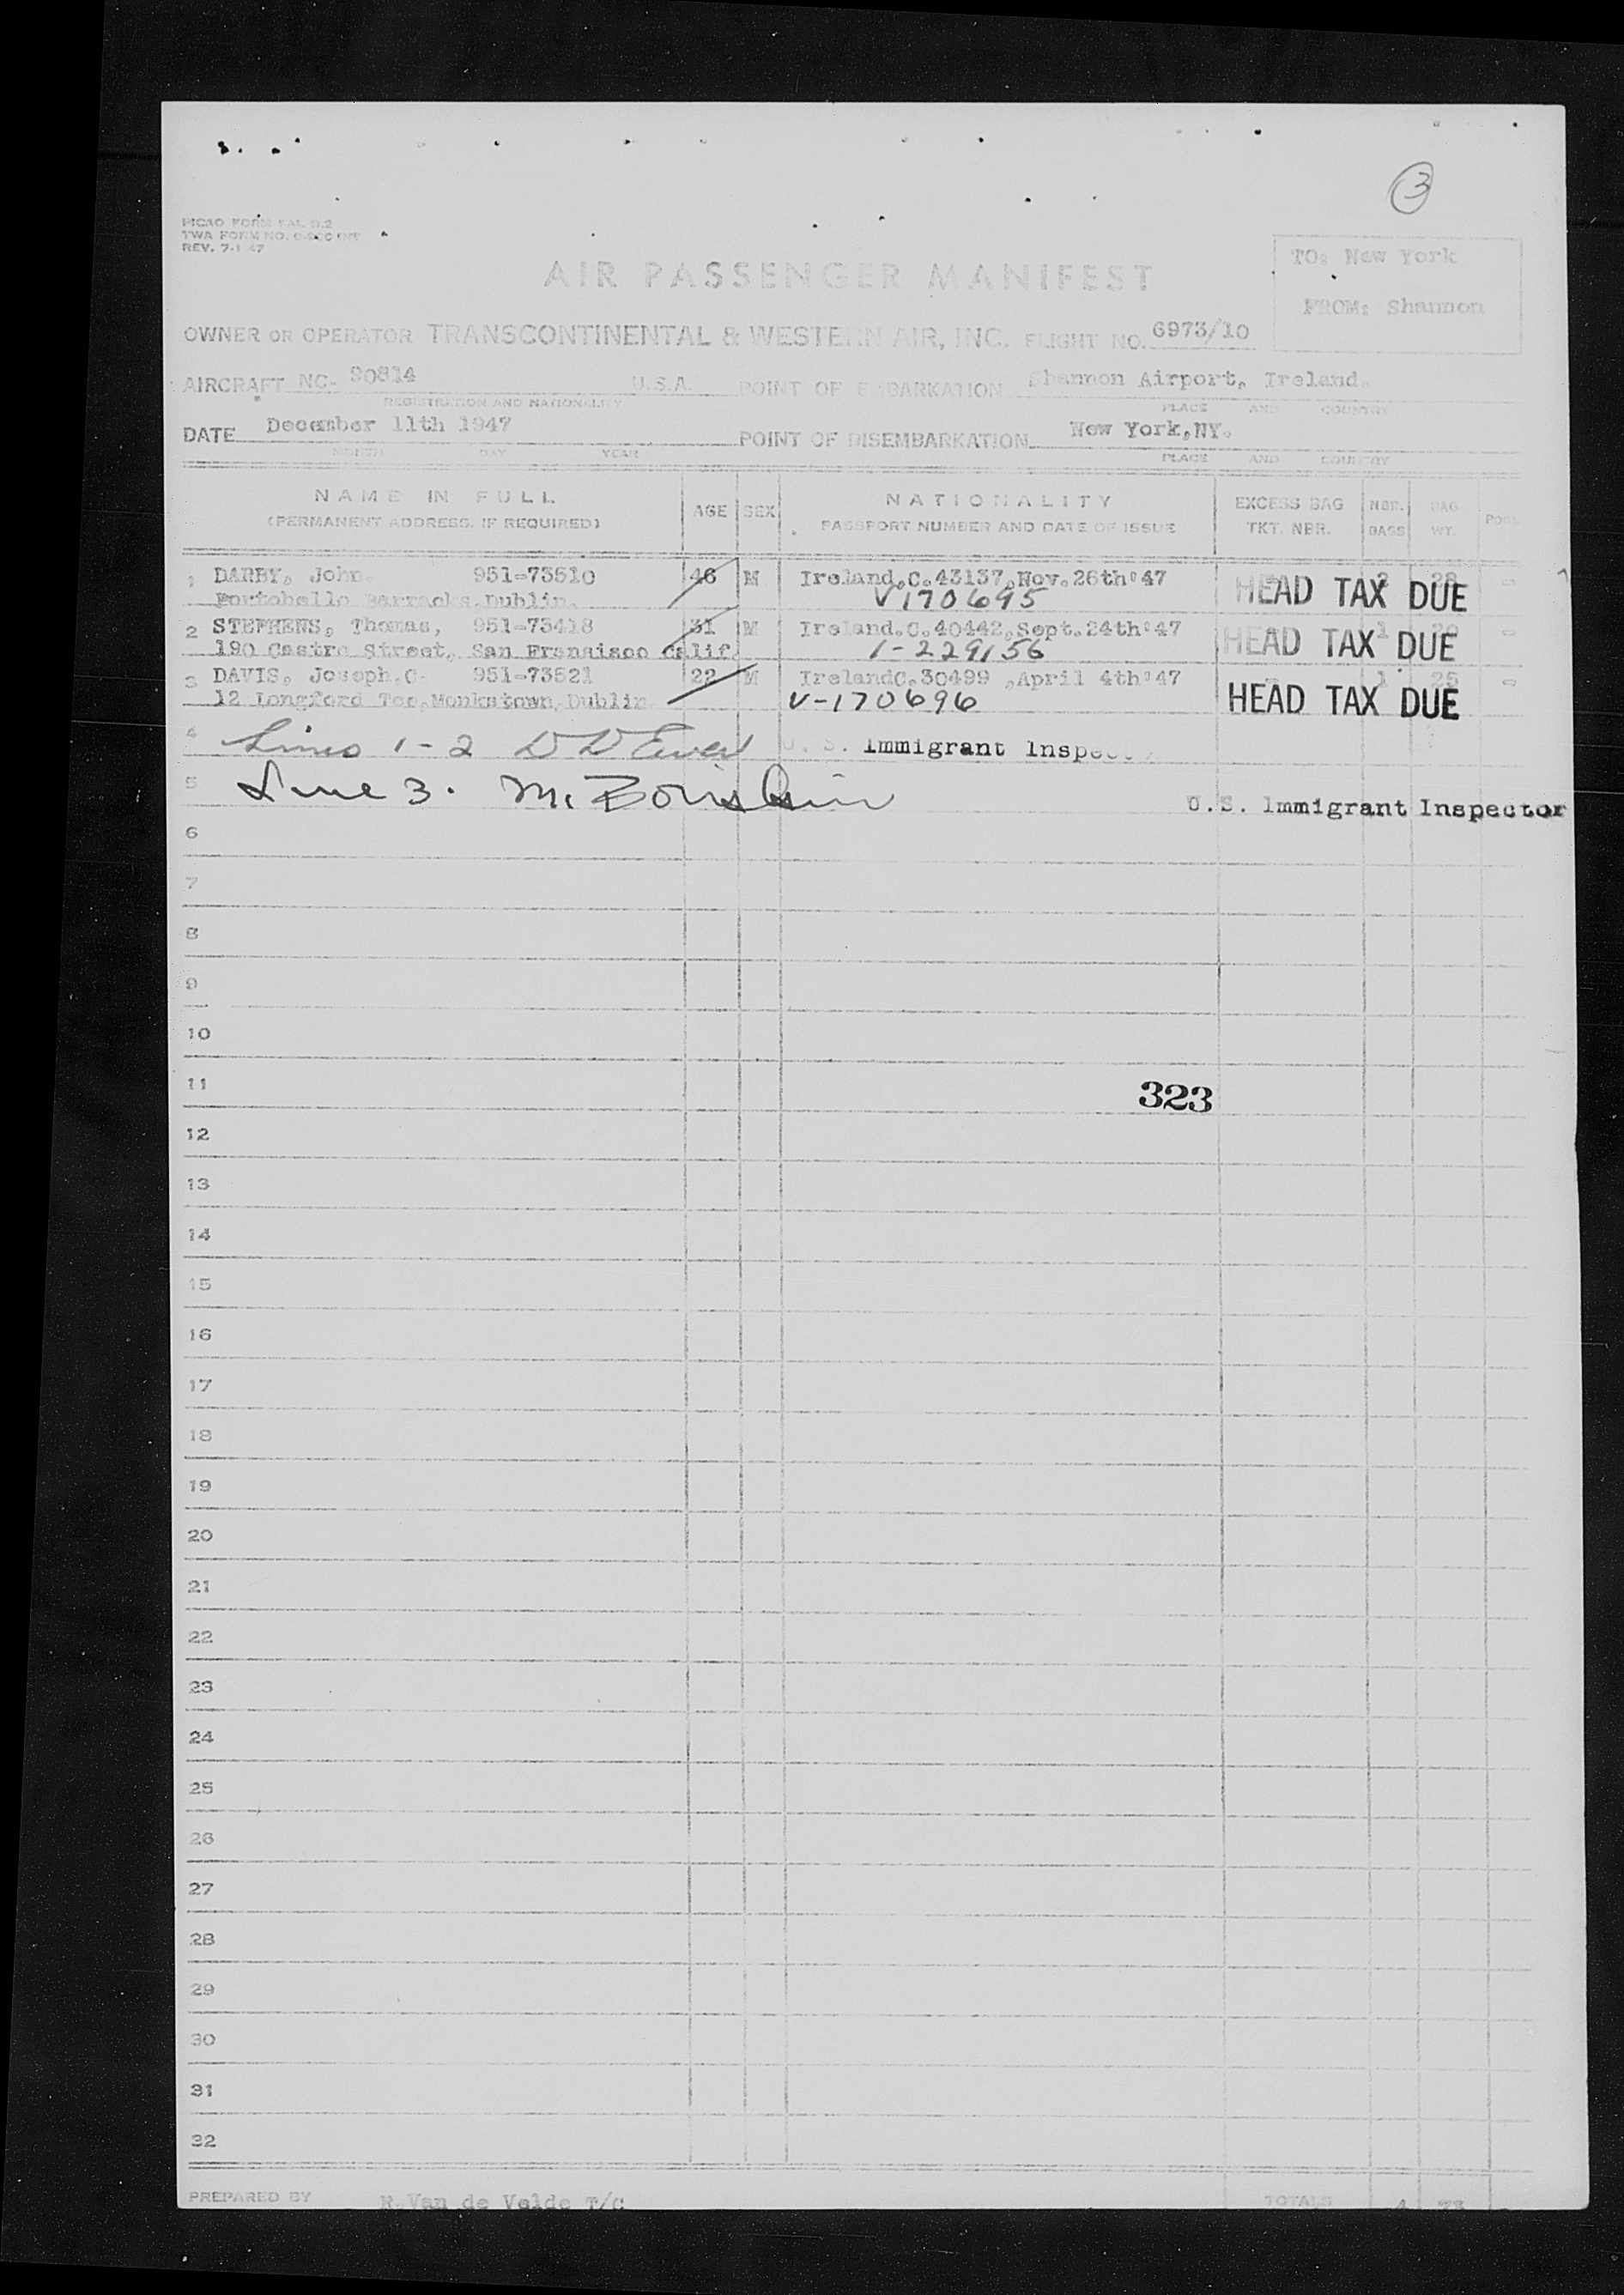 3
PICAO FORM FAL
TWA FORM NO.
REV. 7-1-47
TO: New York
FROM: Shannon
AIR PASSENGER MANIFEST
OWNER OR OPERATOR TRANSCONTINENTAL & WESTERN AIR, INC. FLIGHT NO. 6973/10
AIRCRAFT NC- 90814 U.S.A. POINT OF EMBARKATION Shannon Airport, Ireland.
REGISTRATION AND NATIONALITY PLACE AND COUNTRY
DATE December 11th 1947 POINT OF DISEMBARKATION New York,NY.
MONTH DAY YEAR PLACE AND COUNTRY
NAME IN FULL AGE SEX NATIONALITY EXCESS BAG NBR. BAG
(PERMANENT ADDRESS, IF REQUIRED) PASSPORT NUMBER AND DATE OF ISSUE TKT. NBR. BAGS WT.
1 DARBY, John. 951-73510 46 M Ireland.C.43137,Nov.26th'47 2 28
Portobello Barracks,Dublin. V170695 HEAD TAX DUE
2 STEPHENS, Thomas, 951-73418 31 M Ireland.C.40442,Sept.24th'47 1 20
190 Castro Street, San Frsnaisco Calif. 1-229156 HEAD TAX DUE
3 DAVIS, Joseph.C. 951-73521 22 M IrelandC.30499 ,April 4th'47 1 25
12 Longford Ter,Monkstown,Dublin. V-170696 HEAD TAX DUE
4 Lines 1-2 U. S. Immigrant Inspector
5 Line 3. U.S. Immigrant Inspector
6
7
8
9
10
11 323
12
13
14
15
16
17
18
19
20
21
22
23
24
25
26
27
28
29
30
31
32
PREPARED BY R.Van de Velde T/C TOTALS 4 73